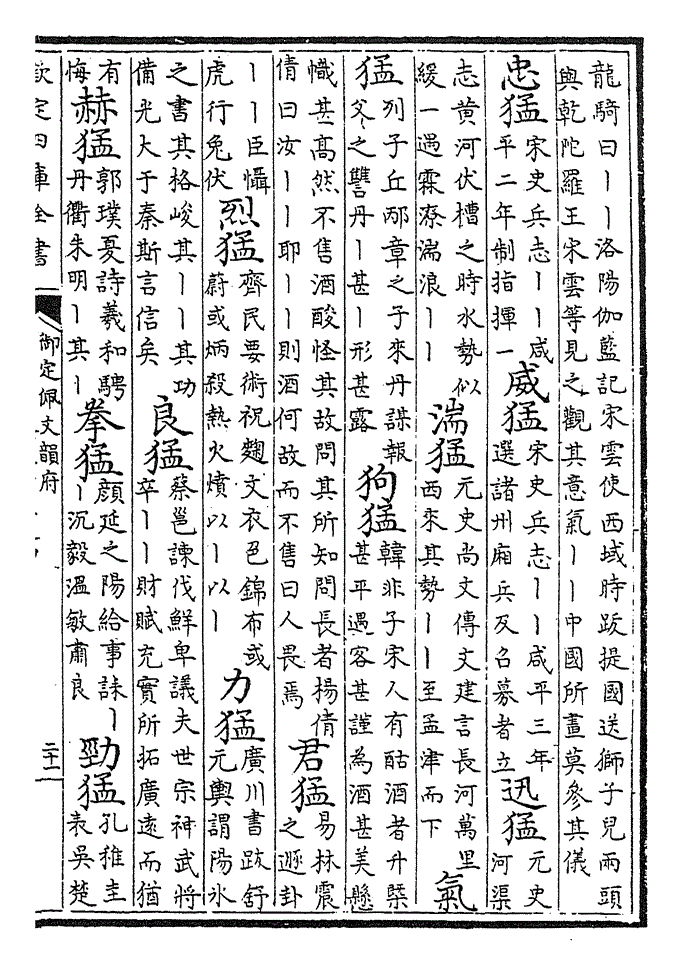 龍騎曰丨丨洛陽伽藍記宋雲使西域時跋提國送獅子兒兩頭
與乾陀羅王宋雲等見之觀其意氣丨丨中國所畫莫參其儀
忠猛
宋史兵志丨丨咸
平二年制指揮一
威猛
宋史兵志丨丨咸平三年
選諸州廂兵及召募者立
迅猛
元史
河渠
志黃河伏槽之時水勢似
緩一遇霖潦湍浪丨丨
湍猛
元史尚文傳文建言長河萬里
西來其勢丨丨至孟津而下
氣
猛
列子丘邴章之子來丹謀報
父之讐丹丨甚丨形甚露
狗猛
韓非子宋人有酤酒者升槩
甚平遇客甚謹為酒甚美懸
幟甚高然不售酒酸怪其故問其所知問長者楊倩
倩曰汝丨丨耶丨丨則酒何故而不售曰人畏焉
君猛
易林震
之遯卦
丨丨臣懾
虎行兔伏
烈猛
齊民要術祝麴文衣色錦布或
蔚或炳殺熱火燌以丨以丨
力猛
廣川書跋舒
元輿謂陽冰
之書其格峻其丨丨其功
備光大于秦斯言信矣
良猛
蔡邕諫伐鮮卑議夫世宗神武將
卒丨丨財賦充實所拓廣遠而猶
有
悔
赫猛
郭璞夏詩羲和騁
丹衢朱明丨其丨
拳猛
顏延之陽給事誄丨
丨沉毅溫敏肅良
勁猛
孔稚圭
表吳楚
欽定四庫全書
御定佩文韻府